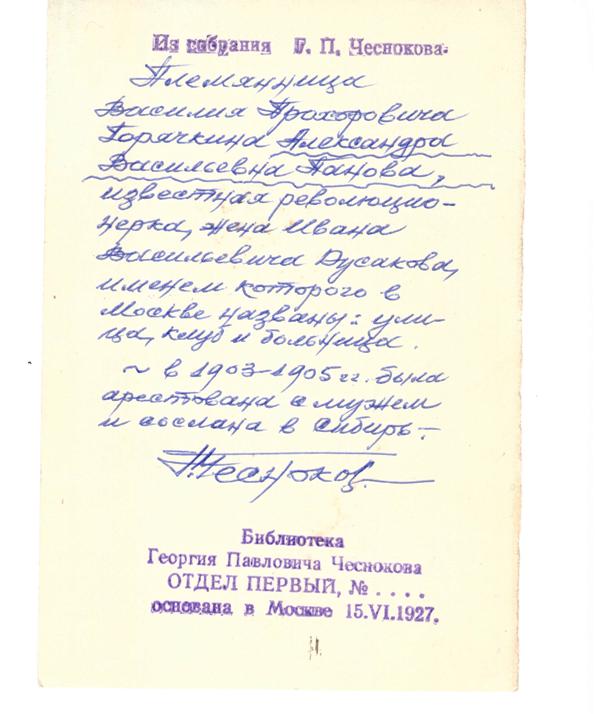 Из собрания Г. П. Чеснокова.
Племянница
Василия Прохоровича
Горячкина Александра
Васильевна Панова,
известная революцио-
нерка, жена Ивана
Васильевича Русакова,
именем которого в
Москве названы: ули-
ца, клуб и больница.
~ в 1903-1905 гг. была
арестована с мужем
и сослана в Сибирь.-
Г. Чесноков.
Библиотека
Георгия Павловича Чеснокова
ОТДЕЛ ПЕРВЫЙ, № . . . .
основана в Москве 15.VI.1927.